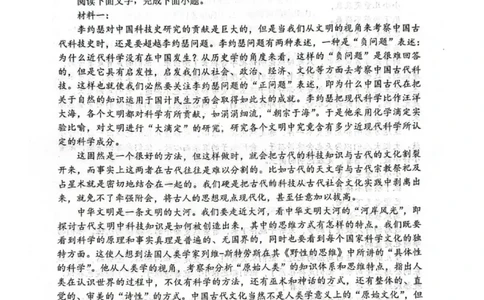 阅读下面文字，完成下面小题。
材料一：
李约瑟对中国科技史研究的贡献是巨大的，但是当我们从文明的视角来考察中国古
代科技史时，还是要超越李约瑟问题。李约瑟问题有两种表述，一种是“负问题”表述：
为什么近代科学没有在中国发生？从历史学的角度来看，这样的“负问题”是很难回答
的，但是它具有启发性，启发我们从社会、政治、经济、文化等方面去考察中国古代科
技。这样也就使我们必然要关注李约瑟问题的“正问题”表述，即为什么中国古代在把
关于自然的知识运用于国计民生方面会取得如此大的成就。李约瑟把现代科学比作汪洋
大海，各个文明都对科学有所贡献，如涓涓细流，“朝宗于海”。于是他采用化学滴定实
验比喻，对文明进行“大滴定”的研究，研究各个文明中究竟含有多少近现代科学所认
定的科学成分。
这固然是一个很好的方法，但这样做时，就会把古代的科技知识与古代的文化割裂
开来，而事实上这两者在古代往往是难以分割的。比如古代的天文学与古代宗教祭祀及
占星术就是密切地结合在一起的。我们硬是把古代的科技从古代社会文化实践中剥离出
来，就免不了牵强附会，将古人的思想观点现代化，甚至任意加以拔高。
中华文明是一条文明的大河。我们要走近大河，看中华文明大河的“河岸风光”，即
探讨古代文明中科技知识是如何被创造出来，其中的思维方式有怎样的特点。我们既要
看到科学的原理和事实真理是普遍的、无国界的，同时也要看到每个国家科学文化的独
特方面。这使人想到法国人类学家列维-斯特劳斯在其《野性的思维》中所讲的“具体性
的科学”。他从人类学的视角，考察和分析“原始人类”的知识体系和思维特点，指出人
类在认识世界的过程中，不仅有科学的方法，还有巫术和神话的方式，还有整体的、直
觉的、审美的“诗性”的方式。中国古代文化当然不是人类学意义上的“原始文化”，但